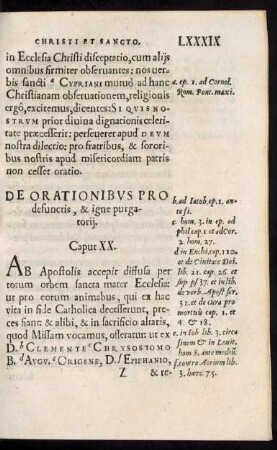 CHRISTI ET SANCTO.
LXXXIX
in Ecclesia Christi disceptatio, cum alijs
omnibus firmiter obseruantes: nos uer̄
bis sancti a CYPRIANI mutuò ad hanc
Christianam obseruationem, religionis
ergò, excitemus, dicentes: SI QUIS NO
STRVM prior diuina dignationis celeri
tate præcesserit: perseueret apud DEVM
nostra dilectio: pro fratribus, & sorori
bus nostris apud misericordiam patris
non cesset oratio.
a. ep. 1. ad Cornel.
Rom. Pont. maxi.
DE ORATIONIBVS PRO
defunctis, & igne purga-
torij.
Caput XX.
AB Apostolis accepit diffusa per
totum orbem sancta mater Ecclesia:
ut pro eorum animabus, qui ex hac
vita in fide Catholica decesserunt, pre
ces fiant: & alibi, & in sacrificio altaris,
quod Missam vocamus, osteratur: ut ex
D. b CLEMENTE c CHRYSOSTOMO
B. d AVGV. e ORIGENE, D. f EPIPHANIO,
Z & re-
b. ad Iacob. ep. 1. an-
te fi.
c. hom. 3. in ep. ad
phil cap. 1 et ad Cor.
2. hom. 27.
d in Enchi. cap. 110.
et de Ciuitate Dei.
lib. 21. cap. 26. et
sep ps 37. et in lib.
de verb. Apost ser.
32. et de cura pro
mortuis cap. 1. et
4. & 18.
e. in Iob lib. 3. circa
finem & in Leuit.
hom 8. ante mediū
f. contra Aerium lib.
3. hære. 75.